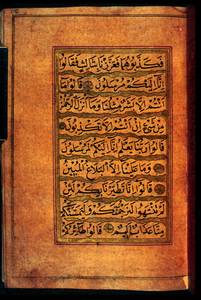 فكذبوهما فعززنا بثالث فقالوا
إنا إليكم مرسلون قالوا ما
أنتم إلا بشر مثلنا وما أنزل الرحمن
من شيء إن أنتم إلا تكذبون
قالوا ربنا يعلم إنا إليكم لمرسلون
وما علينا إلا البلاغ المبين
قالوا إنا تطيرنا بكم لئن
لم تنتهوا لنرجمنكم وليمسنكم
منا عذاب أليم قالوا طائركم